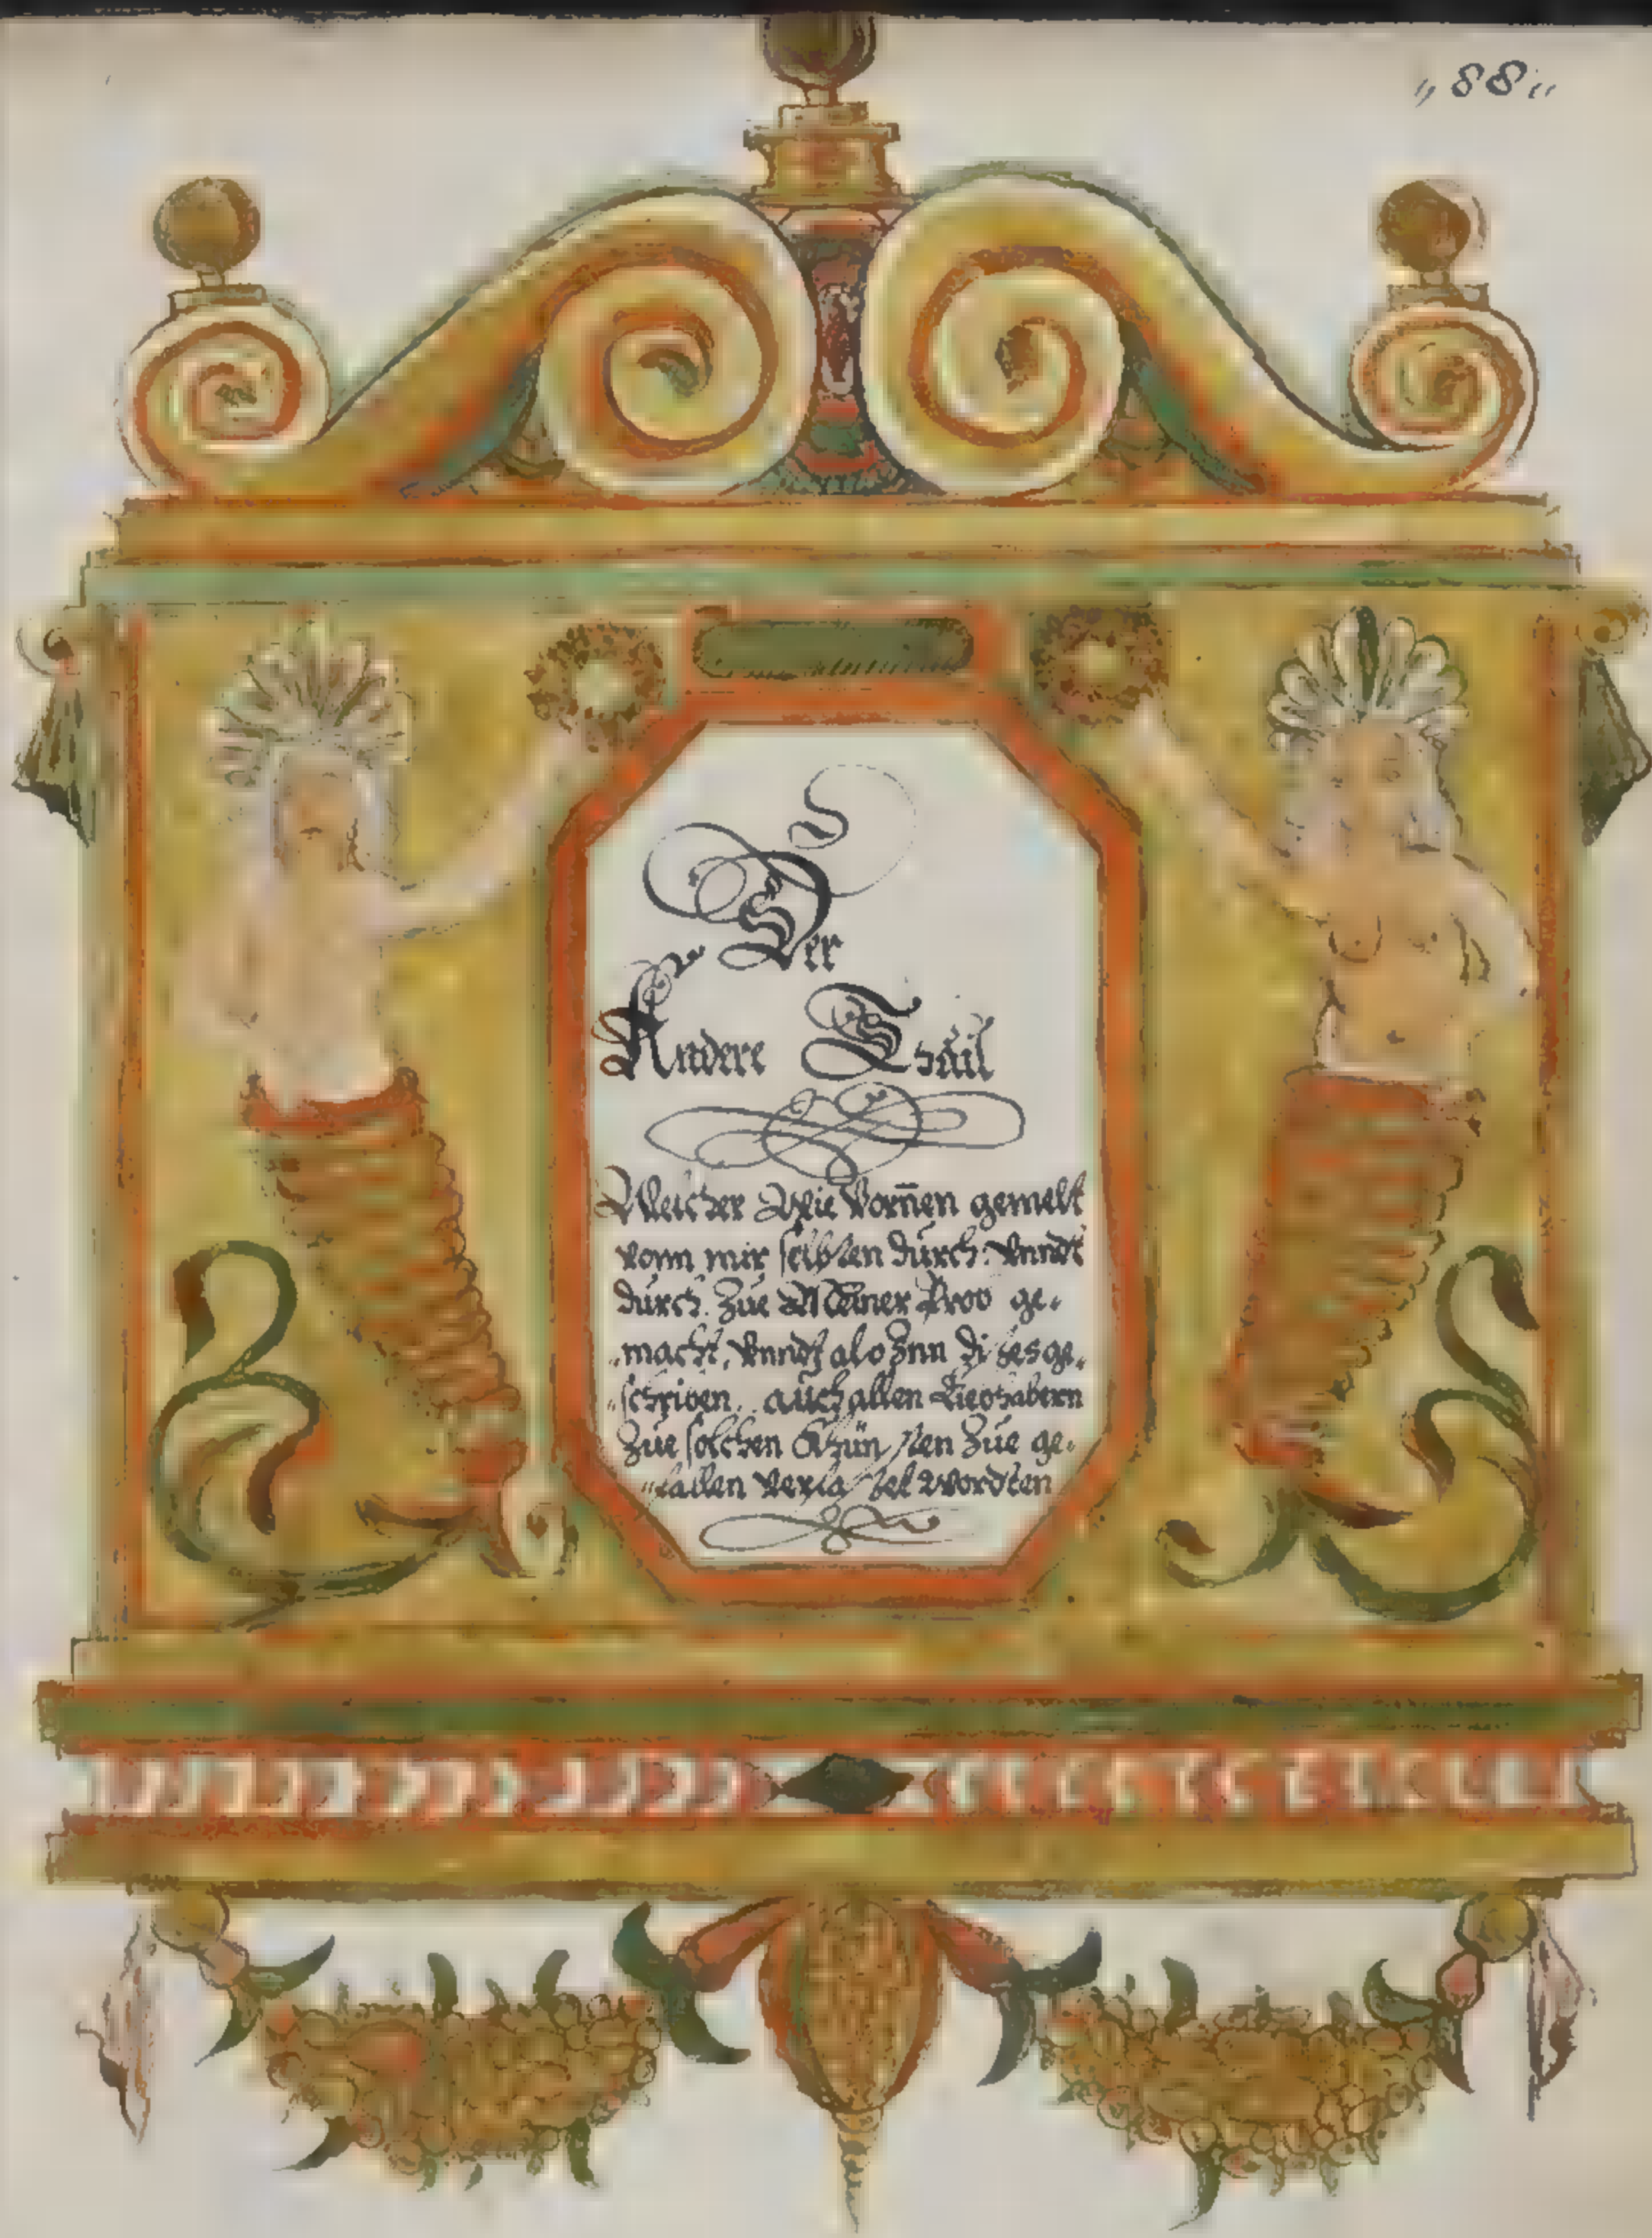 „88“
Der
Andere Thail
Welcher Wie Vorn̄en gemelt
vonn mir selbsten durch: vnndt
durch. Zue Meiner Prob ge„
„macht, vnndt also Inn dises ge„
„schriben, auch allen Liebhabern
Zue solchen Khünsten Zue ge„
„fallen verfasset wordten